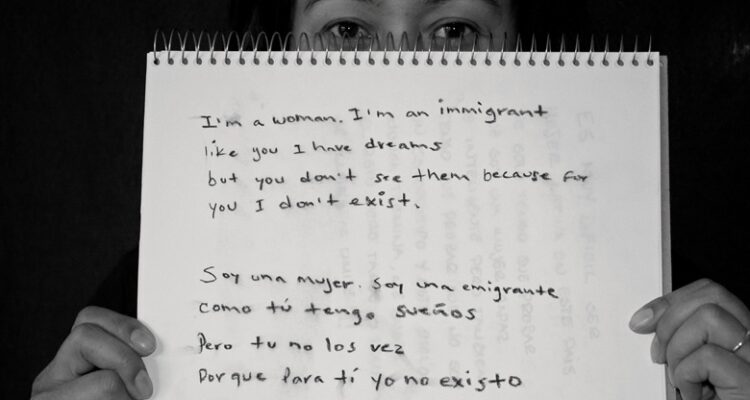 I'm a woman. I'm an immigrant
like you I have dreams
but you don't see them because for
you I don't exist.
Soy una mujer. Soy una emigrante
como tú tengo sueños
Pero tu no los vez
Porque Para tí yo no existo